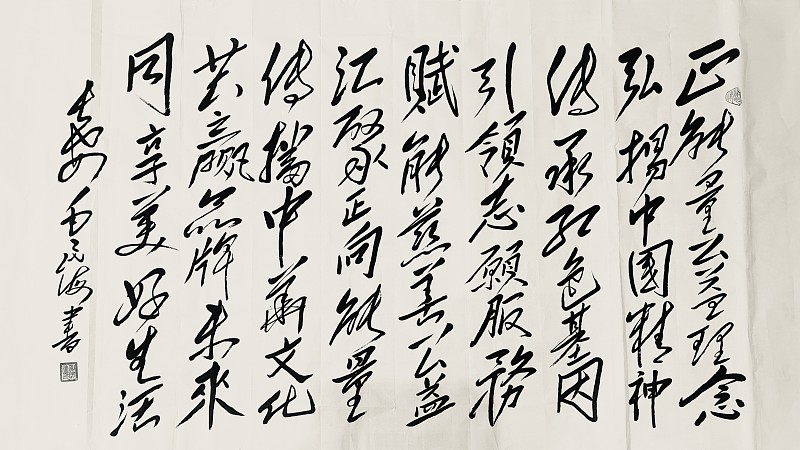 正能量公益理念
弘揚中国精神
传承红色基因
引领志愿服務
赋能慈善公益
汇聚正向能量
传播中华文化
共赢品牌未来
同享美好生活
毛民海書